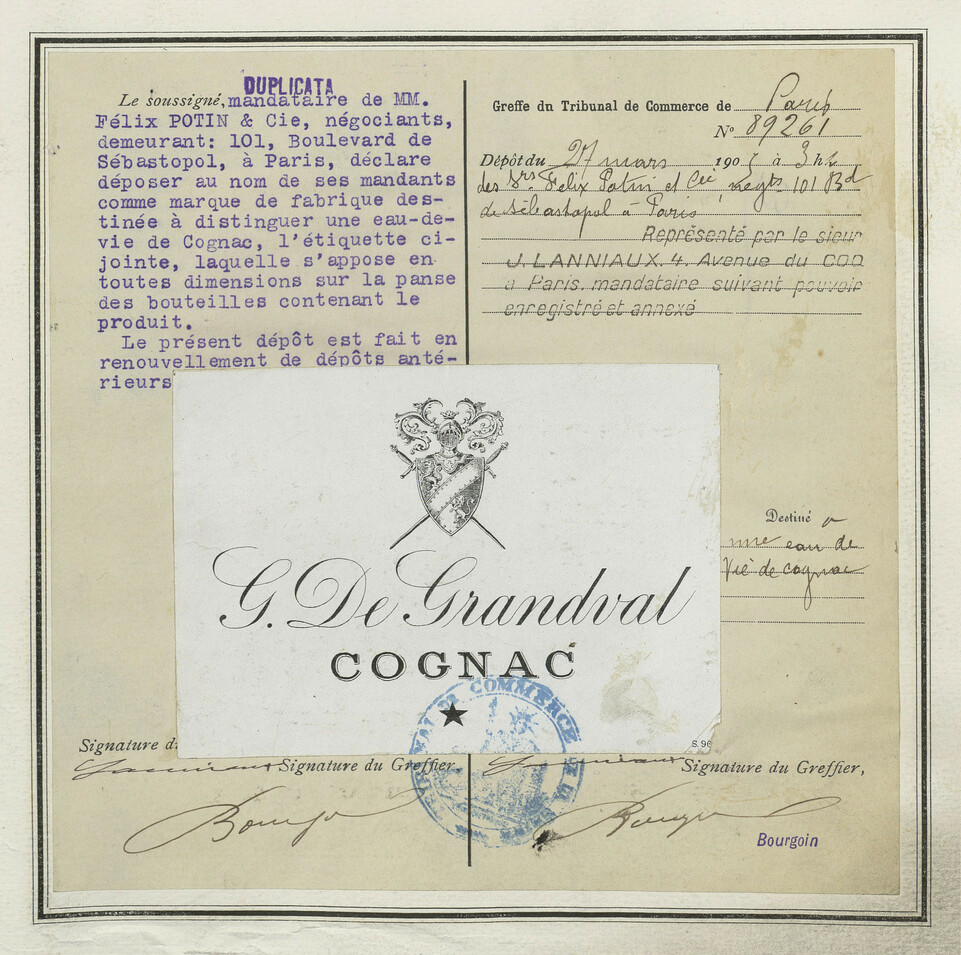 DUPLICATA
Le soussigné, mandataire de MM.
Félix POTIN & Cie, négociants,
demeurant: 101, Boulevard de
Sébastopol, à Paris, déclare
déposer au nom de ses mandants
comme marque de fabrique des-
tinée à distinguer une eau-de-
vie de Cognac, l'étiquette ci-
jointe, laquelle s'appose en
toutes dimensions sur la panse
des bouteilles contenant le
produit.
Le présent dépôt est fait en
renouvellement de dépôts anté-
rieurs
Greffe du Tribunal de Commerce de Paris
N° 89261
Dépôt du 27 mars 190 à 3h
des Srs Felix Potin et Cie negts 101 Bd
de Sébastopol à Paris
Représenté par le sieur
J. LANNIAUX. 4. Avenue du COQ
à Paris. mandataire suivant pouvoir
enregistré et annexé
Destiné à
une eau de
vie de cognac
G. De Grandval
COGNAC
S. 96
COMMERCE DE LA
Signature d
Signature du Greffier,
Signature du Greffier,
Bourgoin